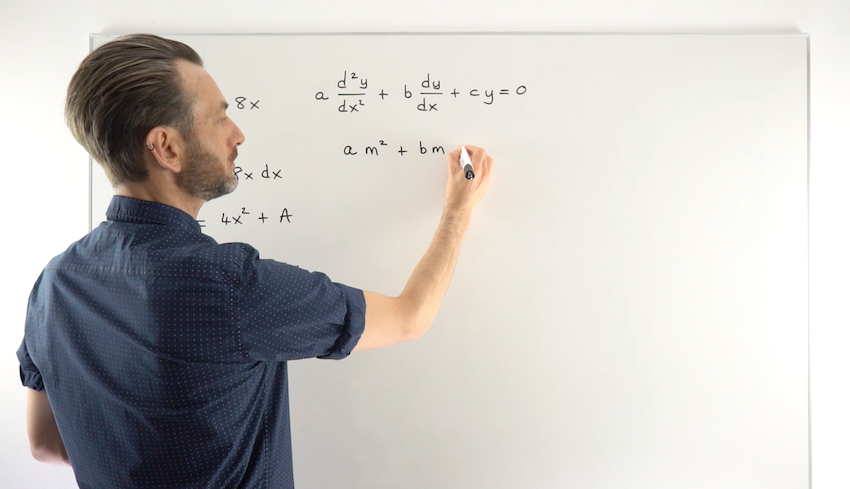 8x
a d²y/dx² + b dy/dx + cy = 0
a m² + b m
8x dx
= 4x² + A